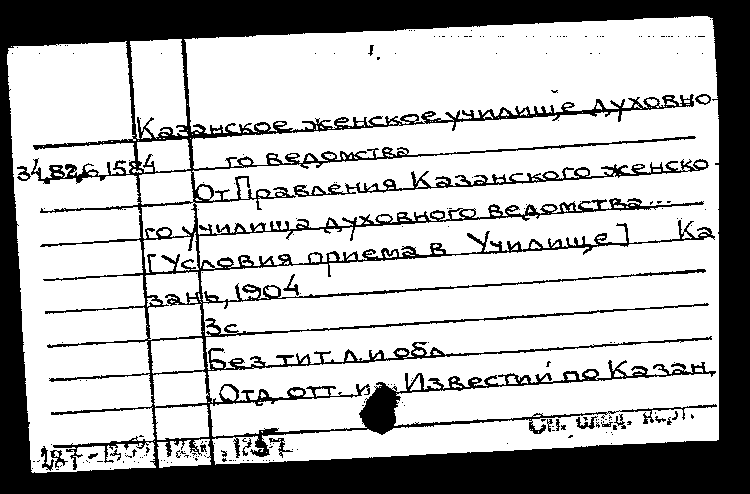 1.
Казанское женское училище духовно-
34.82.6.1584 го ведомства
От Правления Казанского женско-
го училища духовного ведомства...
[Условия приема в Училище] Ка
зань, 1904
3с.
Без тит. л. и обл
Отд. отт. из Известий по Казан.
См. след. карт.